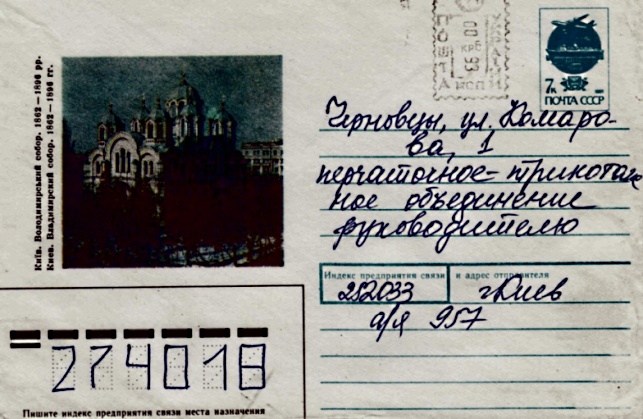 Київ. Володимирський собор. 1862—1896 рр.
Киев. Владимирский собор. 1862—1896 гг.
ПОШТА
00
КРБ
МСП
7к
ПОЧТА СССР
Черновцы, ул. Комаро-
ва, 1
перчаточное-трикотаж
ное объединение
руководителю
Индекс предприятия связи и адрес отправителя
252033 г Киев
а/я 957
274018
Пишите индекс предприятия связи места назначения